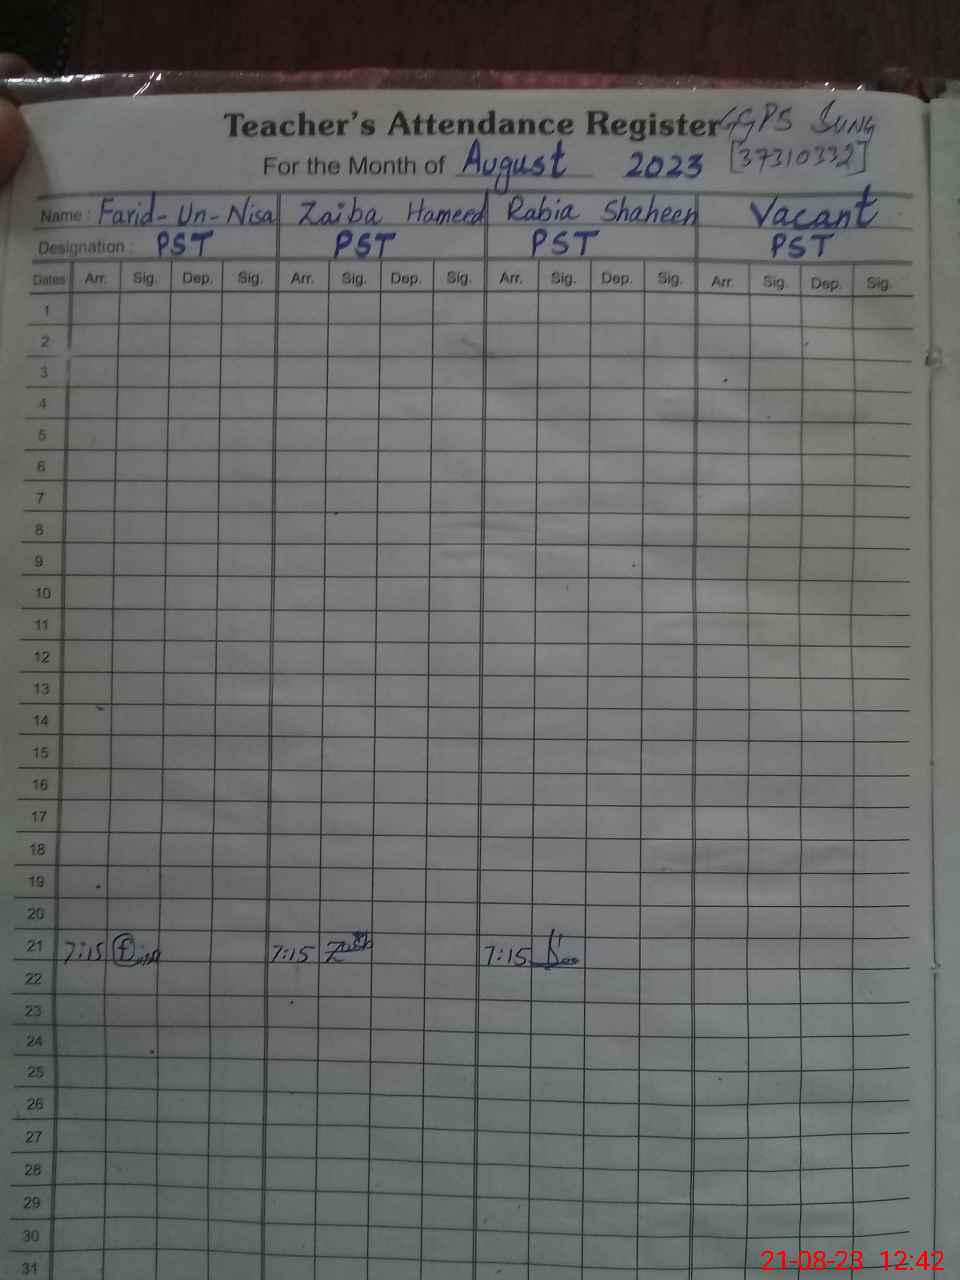 Teacher's Attendance Register GGPS SUNG
For the Month of August 2023 [37310332]
Name : Farid-Un-Nisa Zaiba Hameed Rabia Shaheen Vacant
Designation : PST PST PST PST
Dates Arr. Sig. Dep. Sig. Arr. Sig. Dep. Sig. Arr. Sig. Dep. Sig. Arr. Sig. Dep. Sig.
1
2
3
4
5
6
7
8
9
10
11
12
13
14
15
16
17
18
19
20
21 7:15 7:15 7:15
22
23
24
25
26
27
28
29
30
31
21-08-23 12:42